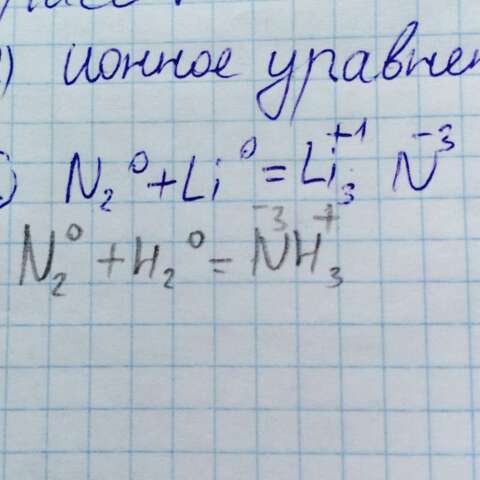 ) ионное уравнен
) N₂⁰ + Li⁰ = Li₃⁺¹ N⁻³
N₂⁰ + H₂⁰ = N⁻³H₃⁺